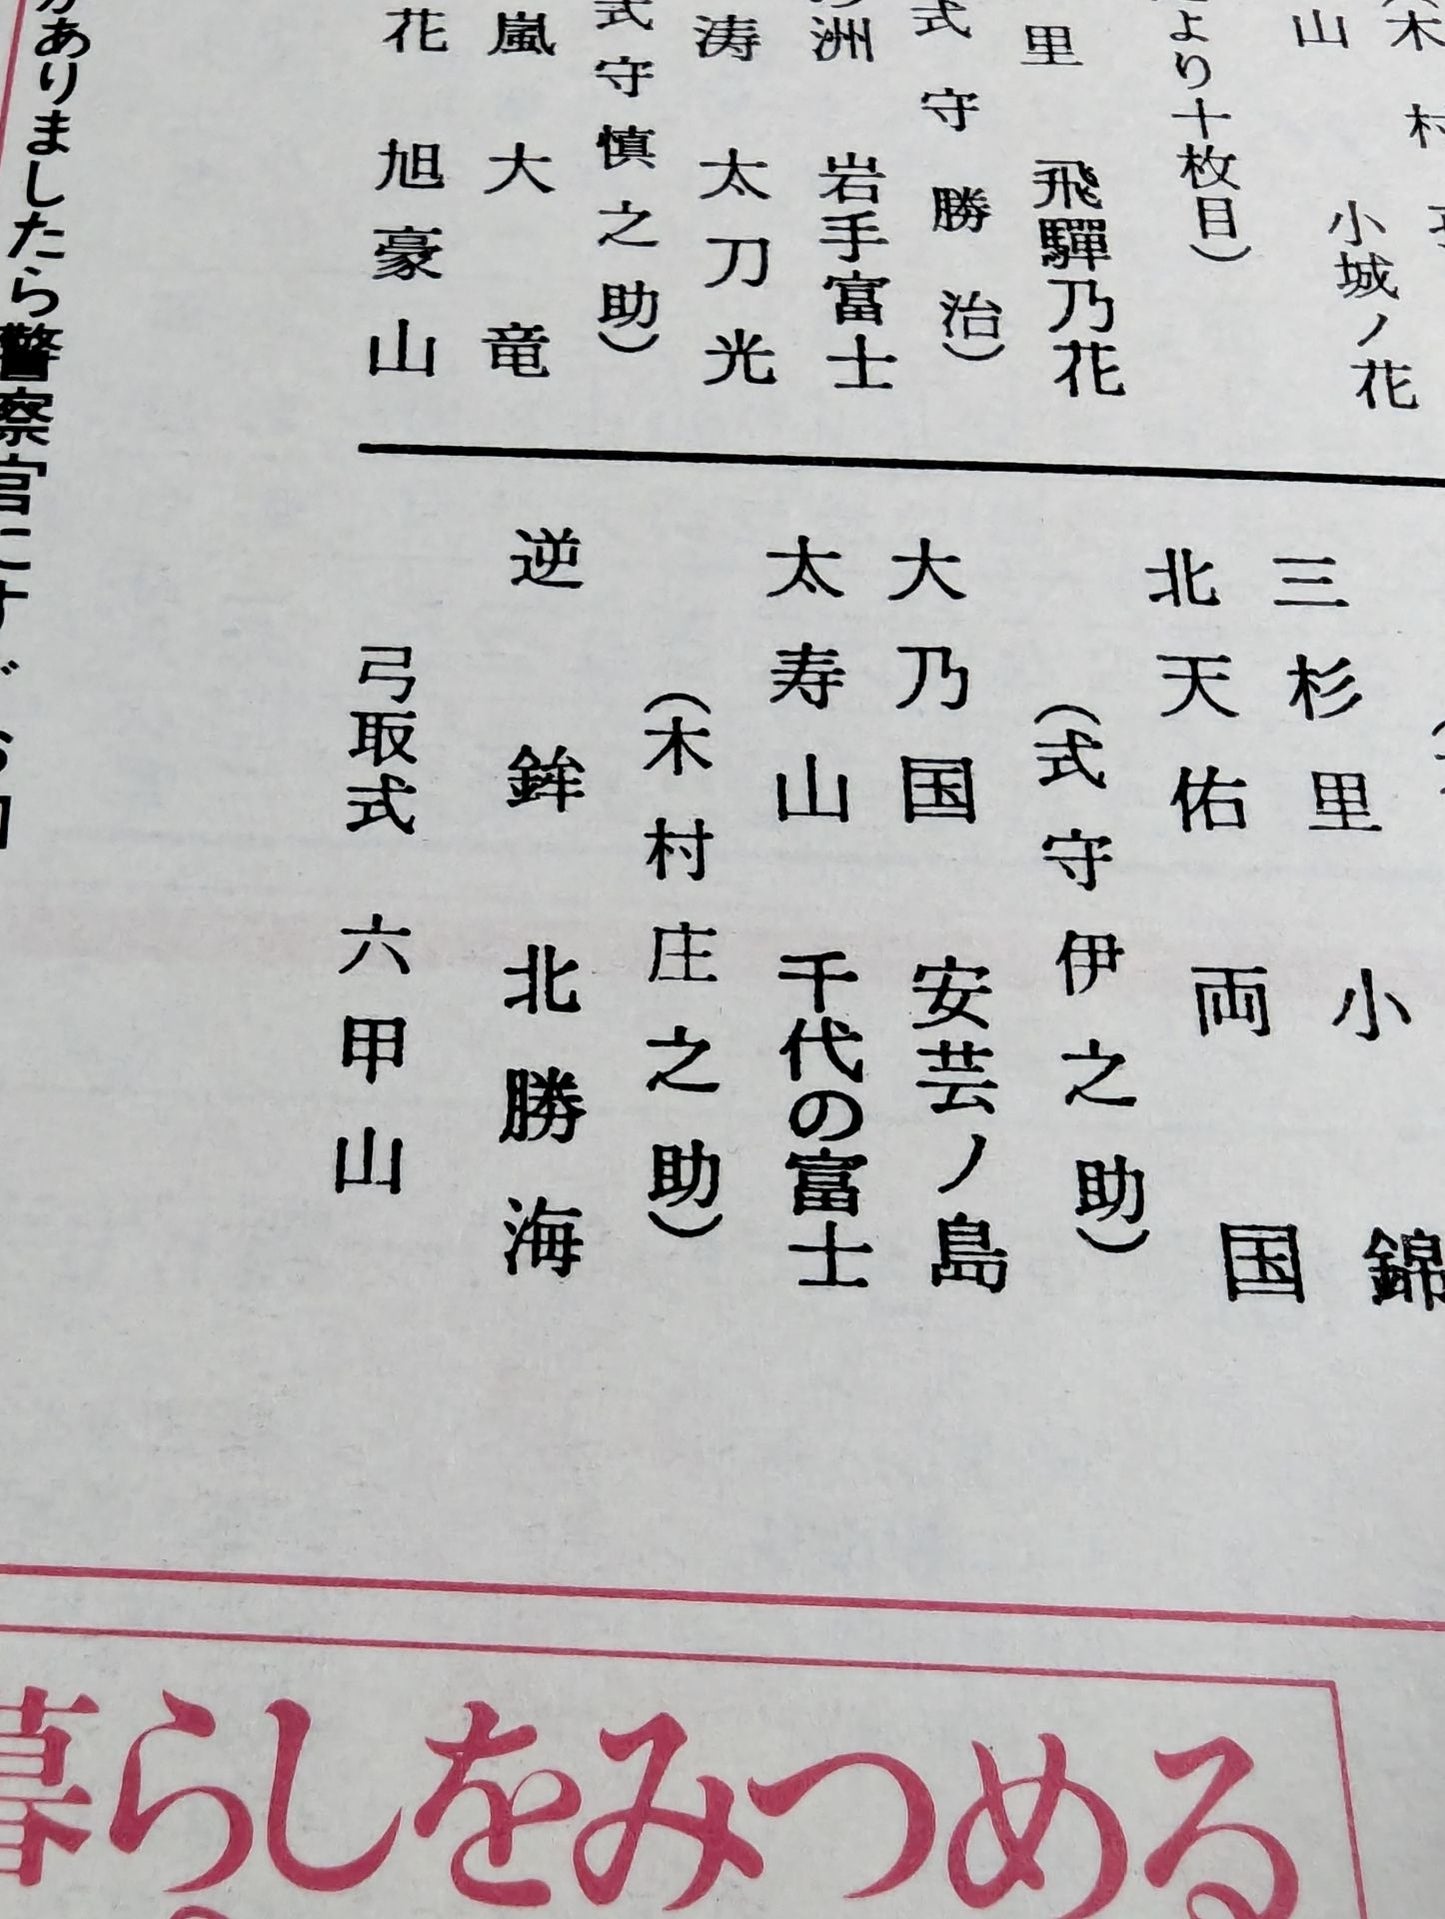 山 小城ノ花
より十枚目）
里 飛驒乃花
式守勝治）
洲 岩手富士
涛 太刀光
式守慎之助）
嵐 大竜
花 旭豪山
三杉里 小錦
北天佑 両国
（式守伊之助）
大乃国 安芸ノ島
太寿山 千代の富士
（木村庄之助）
逆鉾 北勝海
弓取式 六甲山
がありましたら警察官にすぐお
暮らしをみつめる